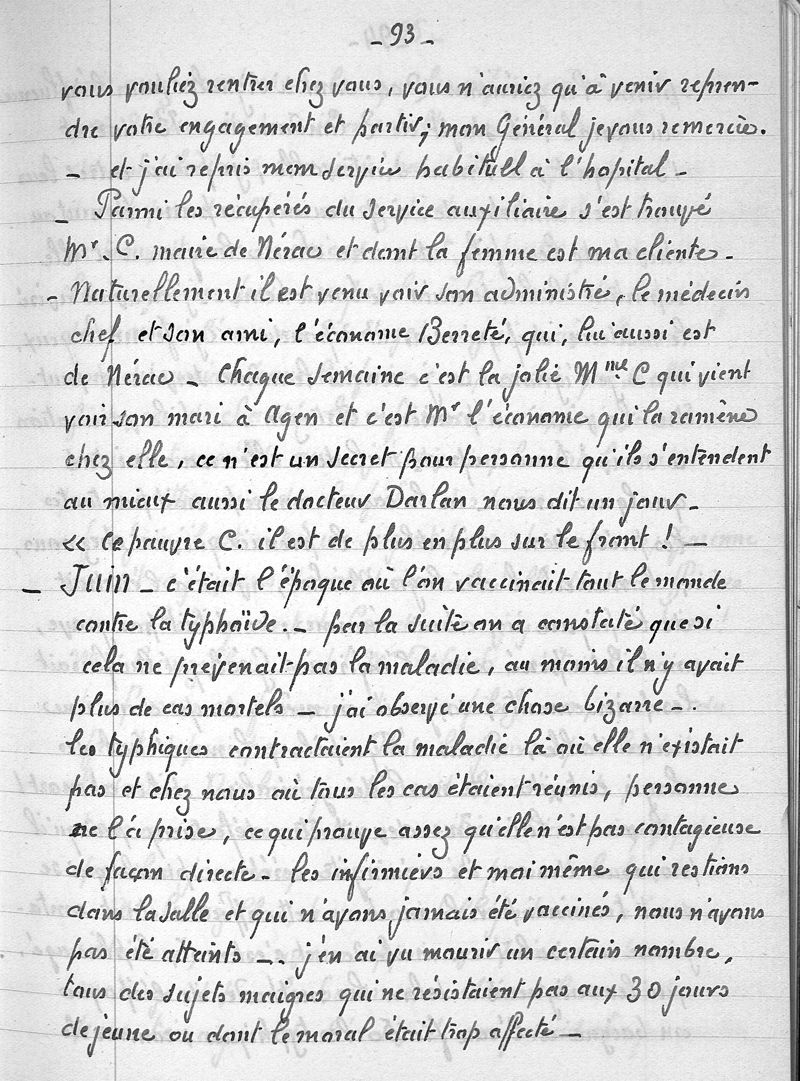 - 93 -
vous vouliez rentrer chez vous, vous n'auriez qu'à venir repren-
dre votre engagement et partir; mon Général je vous remercie.
- et j'ai repris mon service habituell à l'hopital -
- Parmi les récupérés du service auxiliaire s'est trouvé
Mr. C. maire de Nérac et dont la femme est ma cliente -
- Naturellement il est venu voir son administré, le médecin
chef et son ami, l'économe Berreté, qui, lui aussi est
de Nérac - Chaque semaine c'est la jolie Mme C qui vient
voir son mari à Agen et c'est Mr l'économe qui la ramène
chez elle, ce n'est un secret pour personne qu'ils s'entendent
au mieux aussi le docteur Darlan nous dit un jour -
« Ce pauvre C. il est de plus en plus sur le front ! -
- Juin - c'était l'époque où l'on vaccinait tout le monde
contre la typhoïde. - par la suite on a constaté que si
cela ne prévenait pas la maladie, au moins il n'y avait
plus de cas mortels - j'ai observé une chose bizarre - .
les typhiques contractaient la maladie là où elle n'existait
pas et chez nous où tous les cas étaient réunis, personne
ne l'a prise, ce qui prouve assez qu'elle n'est pas contagieuse
de façon directe - les infirmiers et moi même qui restions
dans la salle et qui n'avons jamais été vaccinés, nous n'avons
pas été atteints - . j'en ai vu mourir un certain nombre,
tous des sujets maigres qui ne résistaient pas aux 30 jours
de jeune ou dont le moral était trop affecté -